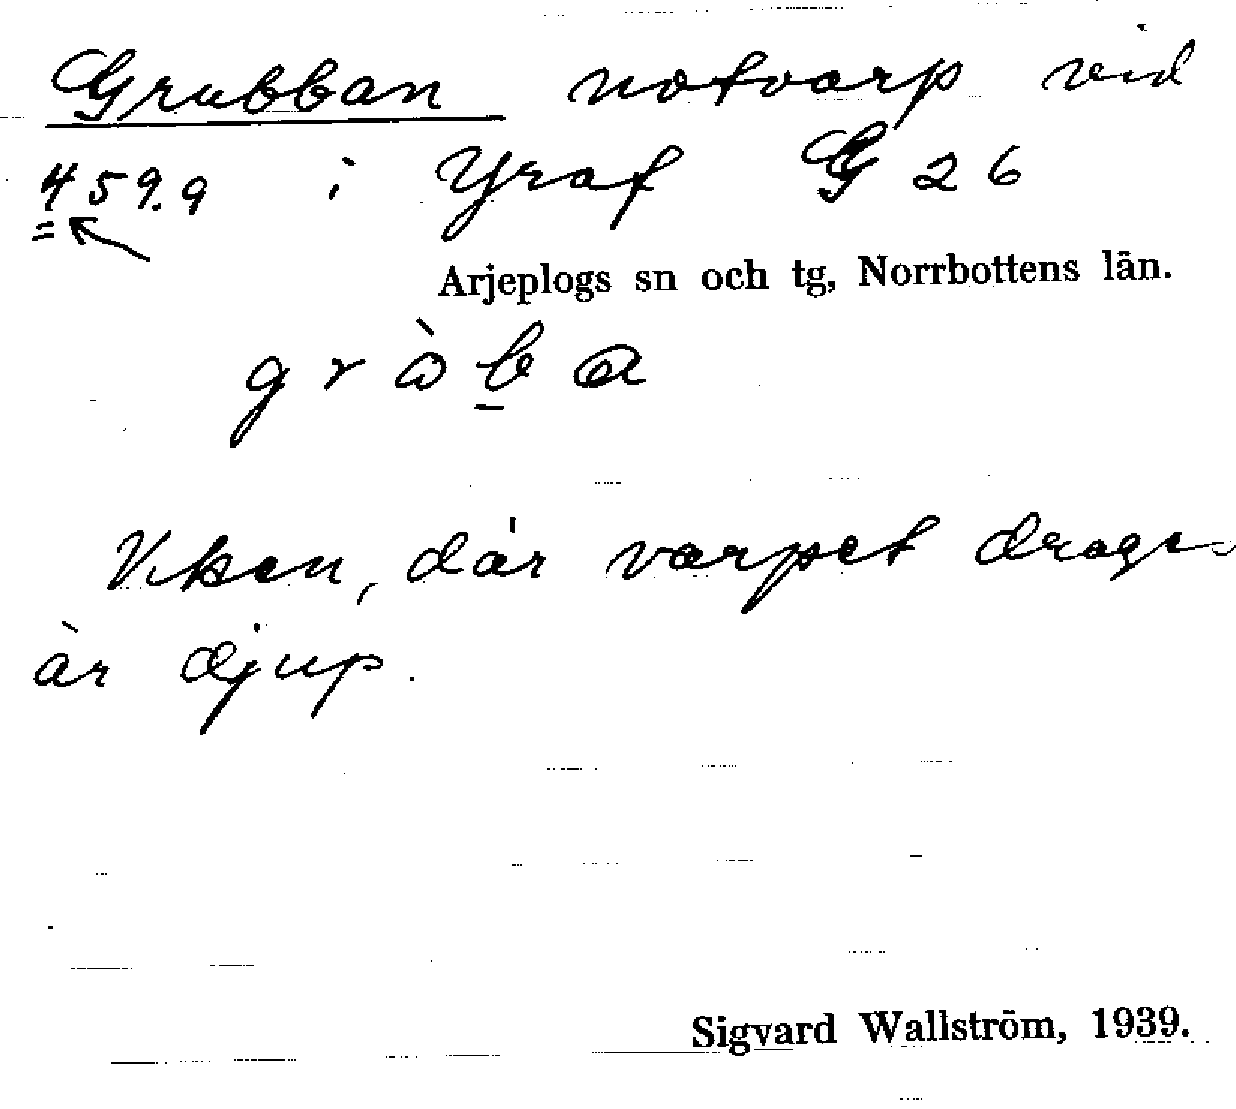 Grubban notvarp vid
459.9 i Yraf G 26
Arjeplogs sn och tg, Norrbottens län.
Viken, där varpet drages
är djup.
Sigvard Wallström, 1939.